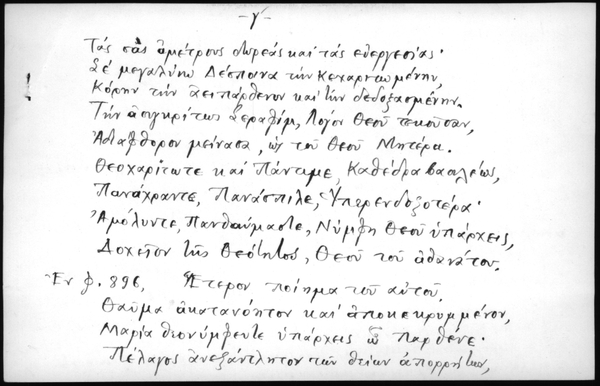 -γ'-
Τάς σας ἀμέτρους δωρεάς καί τάς εὐεργεσίας·
Σέ μεγαλύνω Δέσποινα τήν Κεχαριτωμένην,
Κόρην τήν ἀειπάρθενον καί τήν δεδοξασμένην.
Τήν ἀσυγκρίτως Σεραφίμ, Λόγον Θεοῦ τεκοῦσαν,
Ἀδιαφθορον μείνασα, ὡς τοῦ Θεοῦ Μητέρα.
Θεοχαρίτωτε καί Πάντιμε, Καθέδρα βασιλέως,
Πανάχραντε, Πανάσπιλε, Ὑπερενδοξοτέρα·
Ἀμόλυντε, Πανθαύμαστε, Νύμφη Θεοῦ ὑπάρχεις,
Δοχεῖον τῆς Θεότητος, Θεοῦ τοῦ ἀθανάτου.
Ἐν φ. 896, Ἕτερον ποίημα τοῦ αὐτοῦ.
Θαῦμα ἀκατανόητον καί ἀποκεκρυμμένον,
Μαρία θεονύμφευτε ὑπάρχεις ὦ Παρθένε·
Πέλαγος ἀνεξάντλητον τῶν θείων ἀπορρήτων,